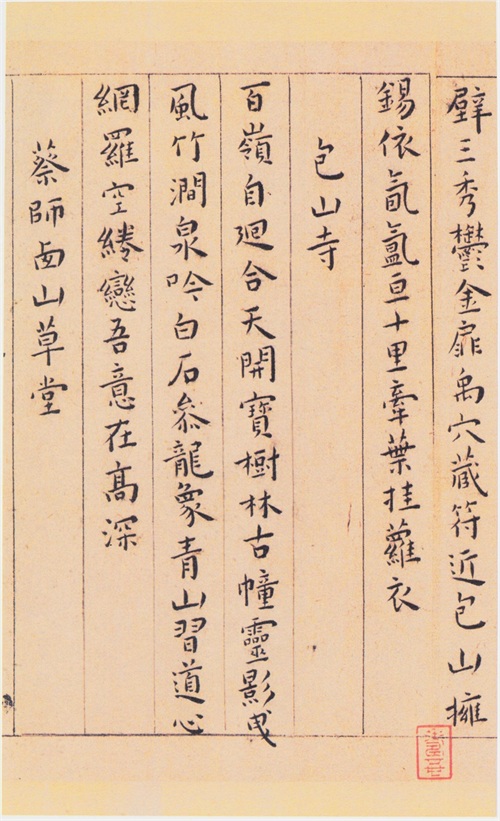 壁三秀鬱金扉禹穴蔵符近包山擁
錫依氤氳亘十里牽葉挂蘿衣
包山寺
百嶺自廻合天開寶樹林古幢靈影曳
風竹澗泉吟白石叅龍象青山習道心
網羅空綣戀吾意在髙深
蔡師卥山草堂